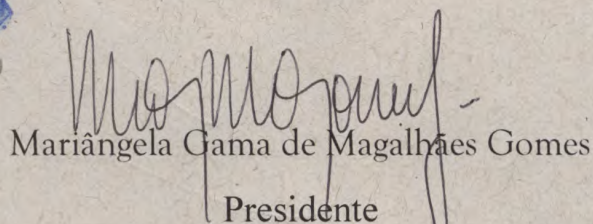 Mariângela Gama de Magalhães Gomes
Presidente